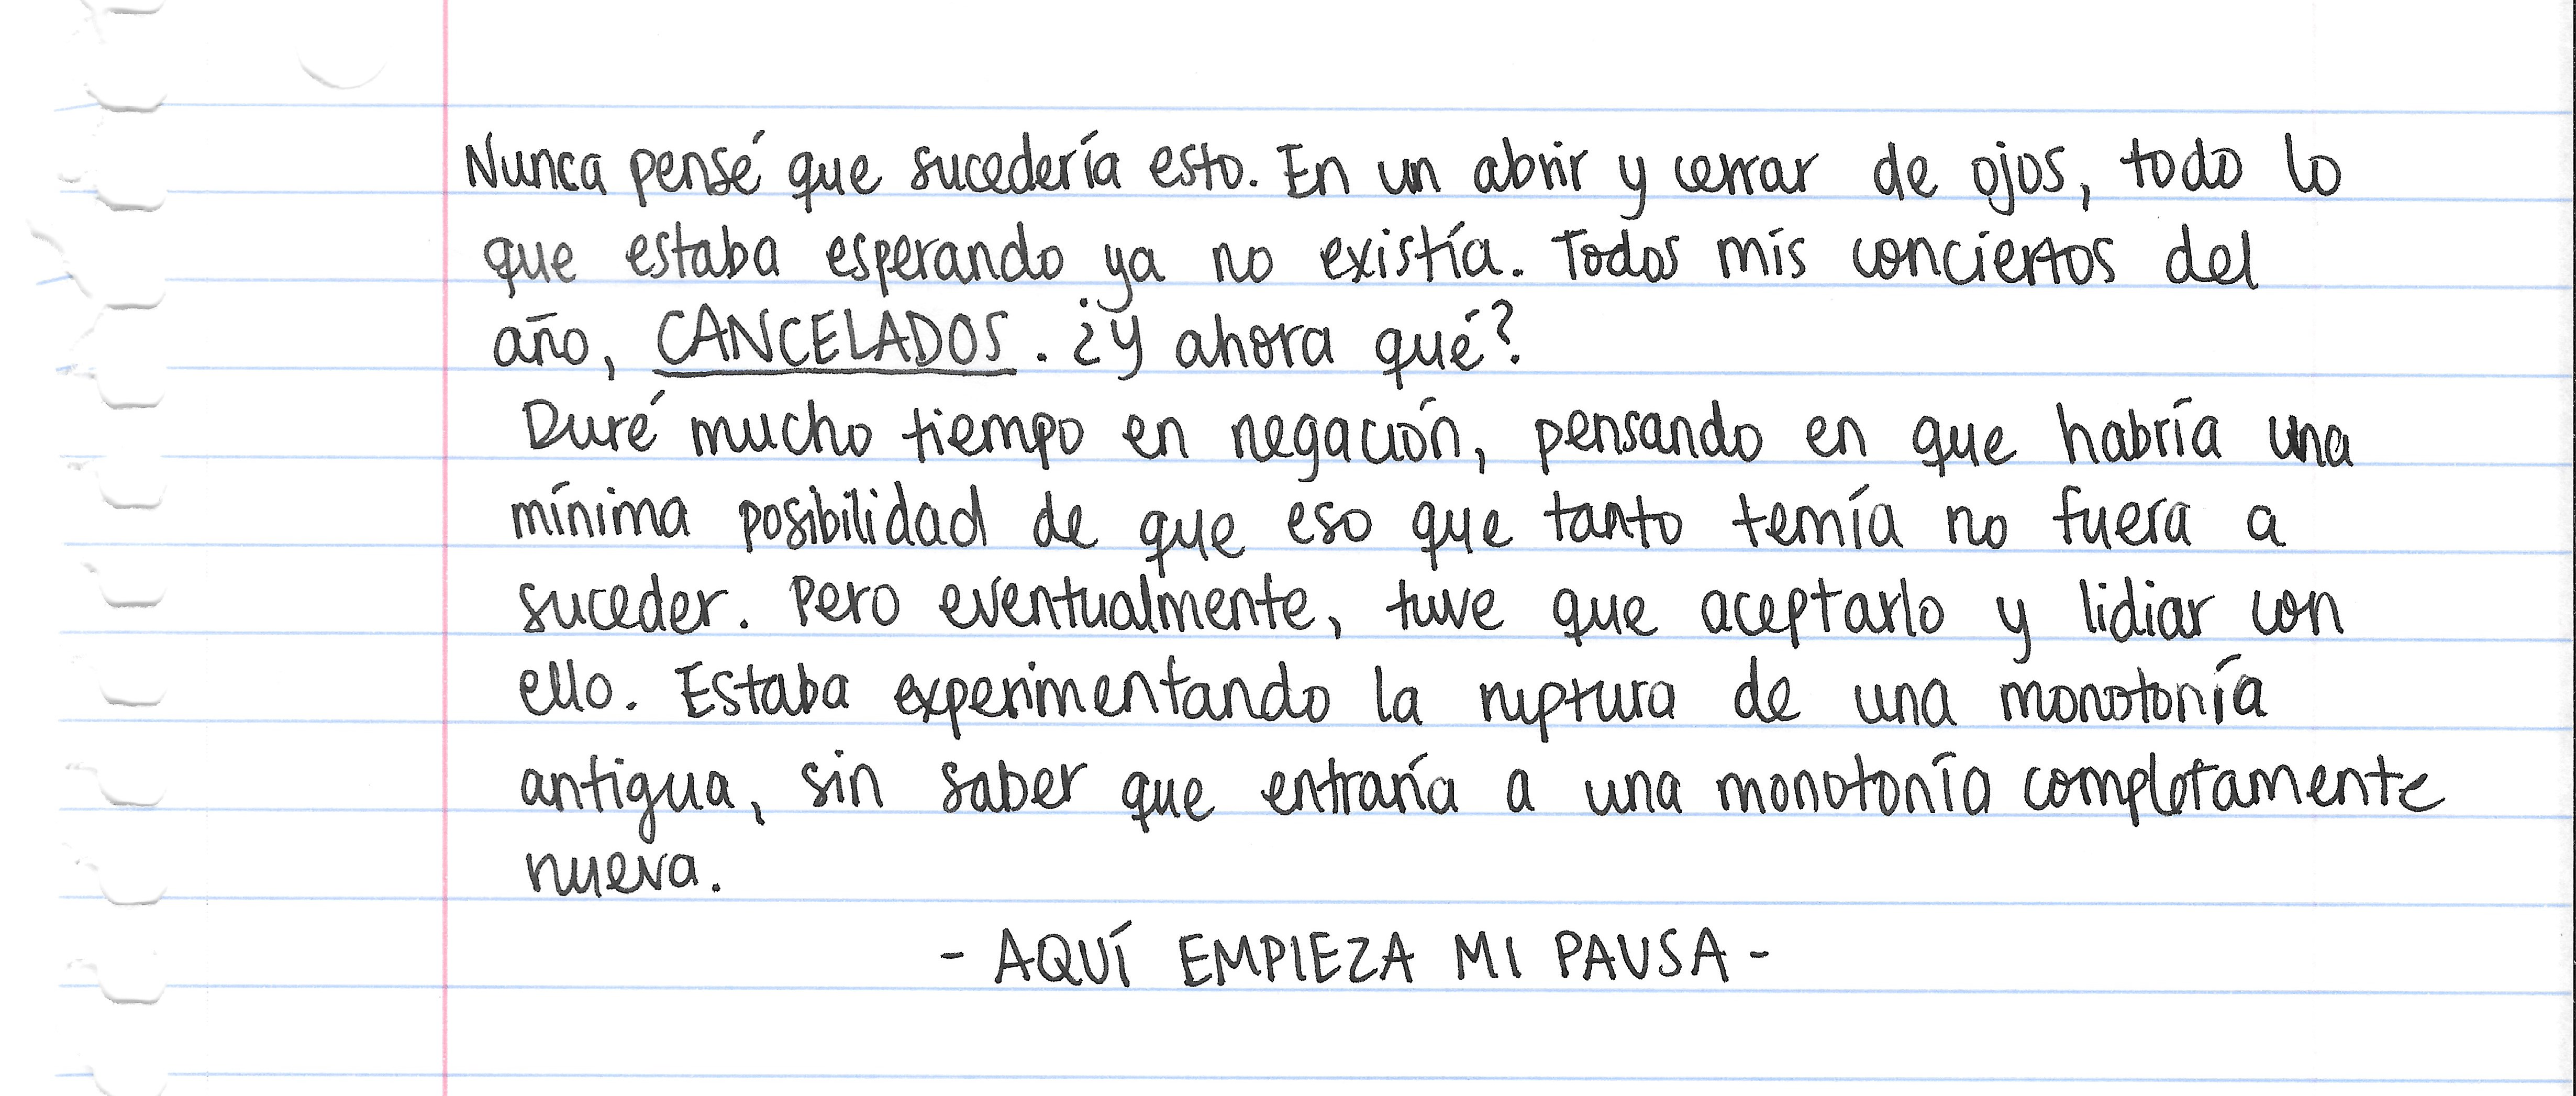 Nunca pensé que sucedería esto. En un abrir y cerrar de ojos, todo lo
que estaba esperando ya no existía. Todos mis conciertos del
año, CANCELADOS. ¿Y ahora qué?
Duré mucho tiempo en negación, pensando en que habría una
mínima posibilidad de que eso que tanto temía no fuera a
suceder. Pero eventualmente, tuve que aceptarlo y lidiar con
ello. Estaba experimentando la ruptura de una monotonía
antigua, sin saber que entraría a una monotonía completamente
nueva.
- AQUÍ EMPIEZA MI PAUSA -